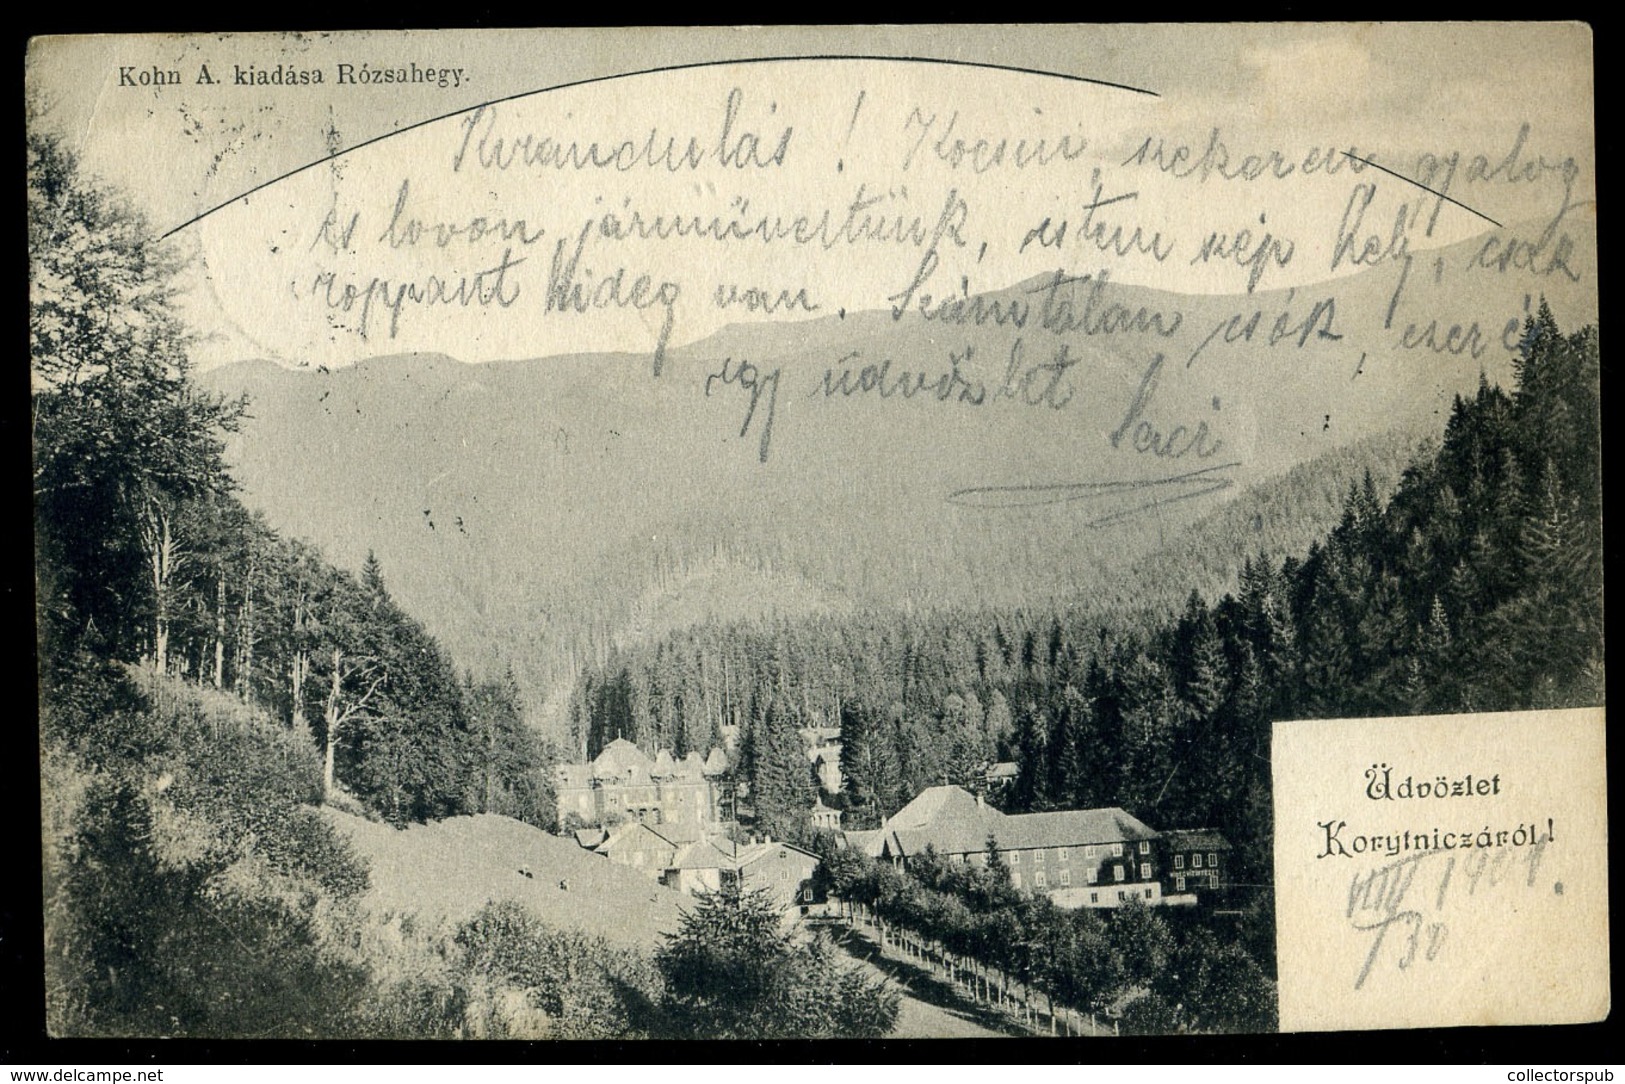 Kohn A. kiadása Rózsahegy.
Kirándulás! Kocsin, szekeren gyalog
és lovon járművestünk, isteni szép hely, csak
roppant hideg van. Számtalan csók, ezer és
egy üdvözlet
Saci
Üdvözlet
Korytniczáról!
VIII/30 1904.
www.delcampe.net
collectorspub